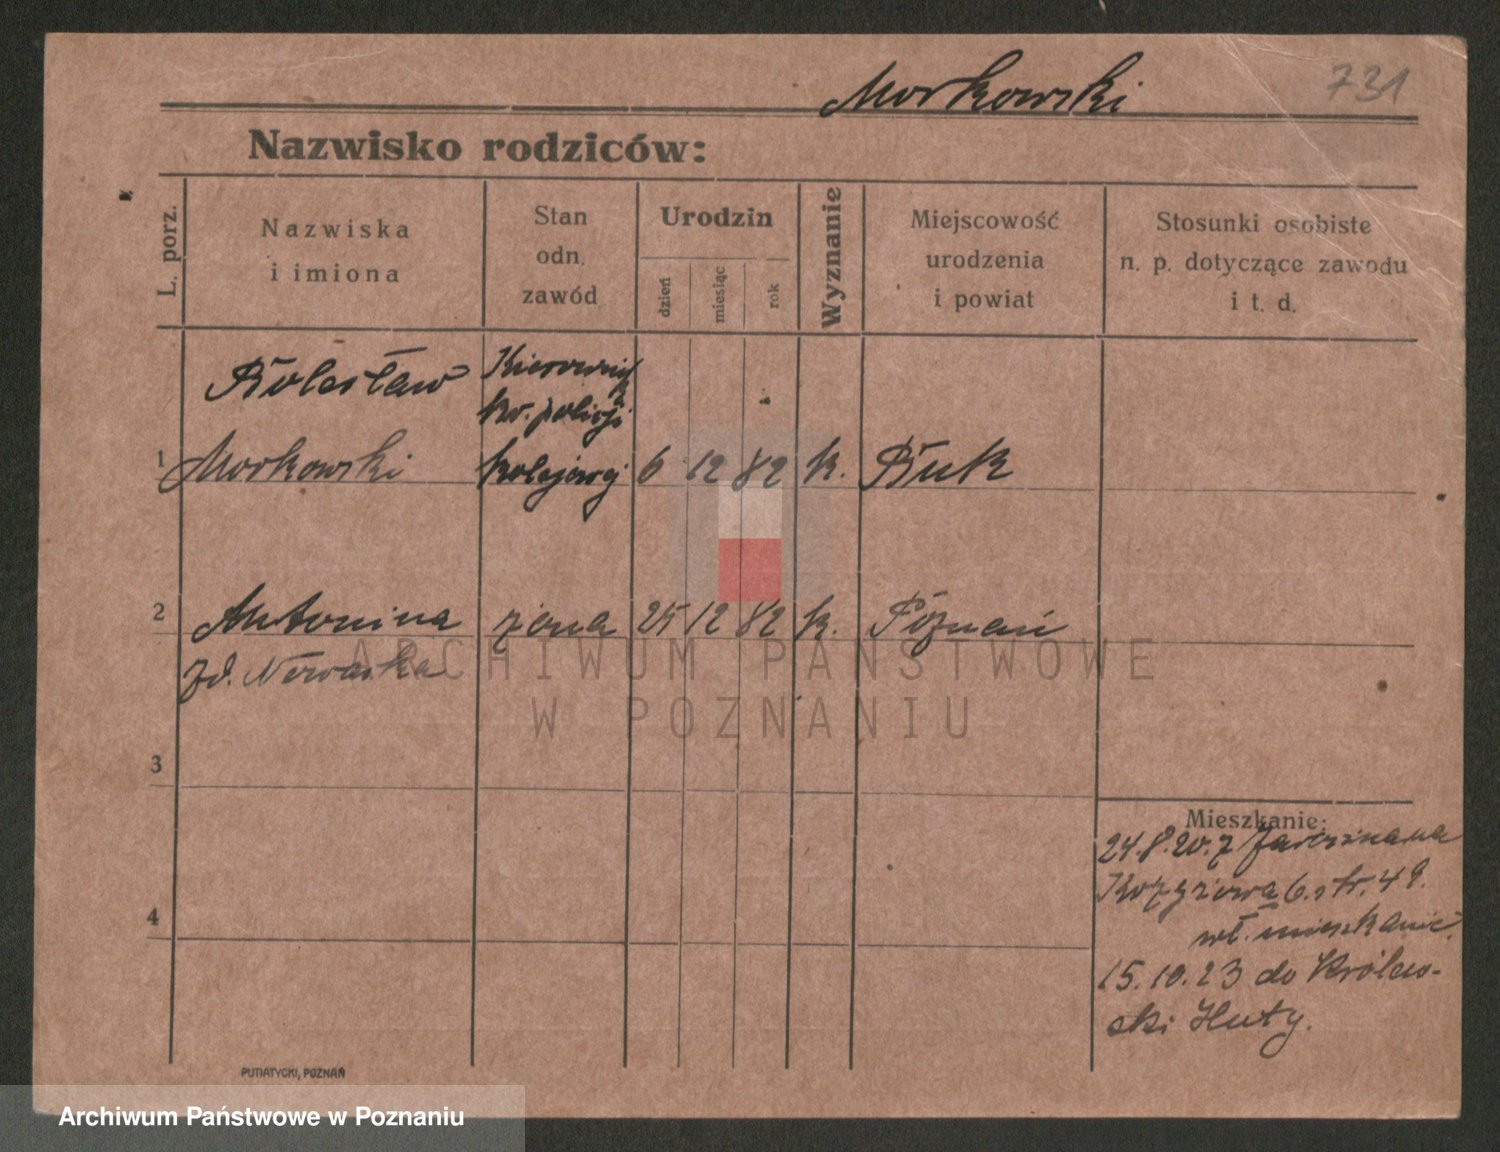 Morkowski 731
Nazwisko rodziców:
L. porz.
Nazwiska
i imiona
Stan
odn.
zawód
Urodzin
dzień
miesiąc
rok
Wyznanie
Miejscowość
urodzenia
i powiat
Stosunki osobiste
n. p. dotyczące zawodu
i t. d.
Bolesław Kierownik
kw. policji
1 Morkowski kolejowej 6 12 82 k. Buk
2 Antonina żona 25 12 82 k. Poznań
zd. Nowacka
3
4
Mieszkanie:
24.8.20. z
6. str. 49.
wł. mieszkanie
15.10.23 do Królew-
ski Huty.
PUTIATYCKI, POZNAŃ
ARCHIWUM PAŃSTWOWE
W POZNANIU
Archiwum Państwowe w Poznaniu